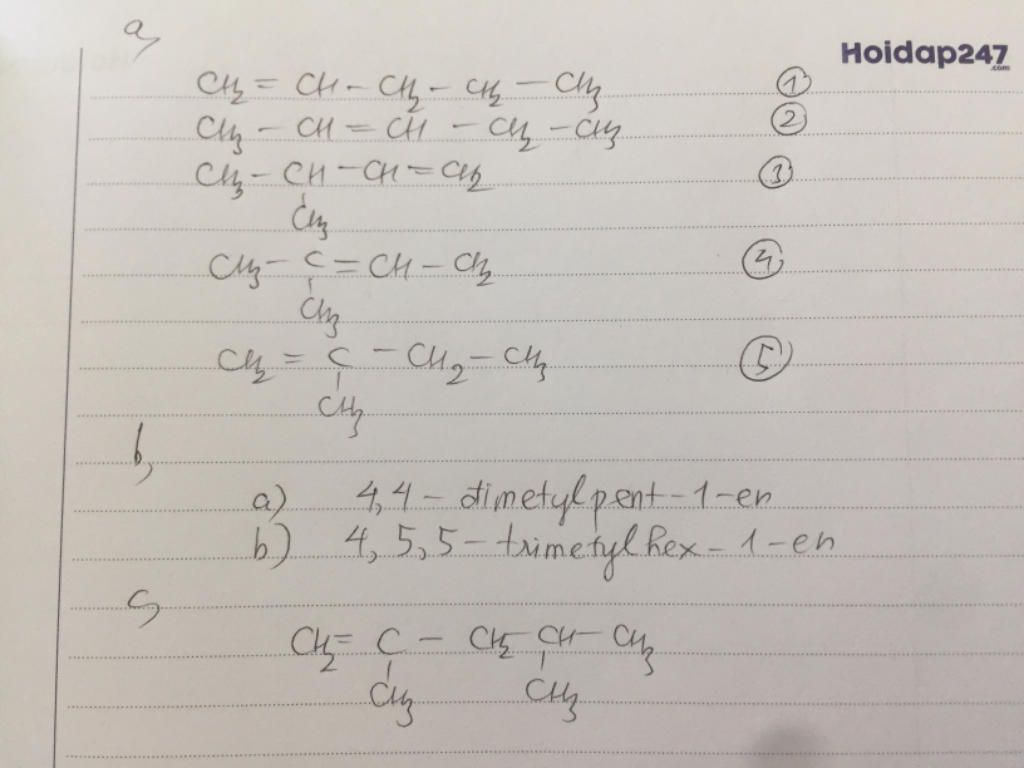 a,
Hoidap247
.com
CH2 = CH - CH2 - CH2 - CH3 ①
CH3 - CH = CH - CH2 - CH3 ②
CH3 - CH - CH = CH2 ③
CH3
CH3 - C = CH - CH2 ④
CH3
CH2 = C - CH2 - CH3 ⑤
CH3
b,
a) 4,4 - dimetylpent - 1 - en
b) 4, 5, 5 - trimetylhex - 1 - en
c,
CH2 = C - CH2 - CH - CH3
CH3 CH3